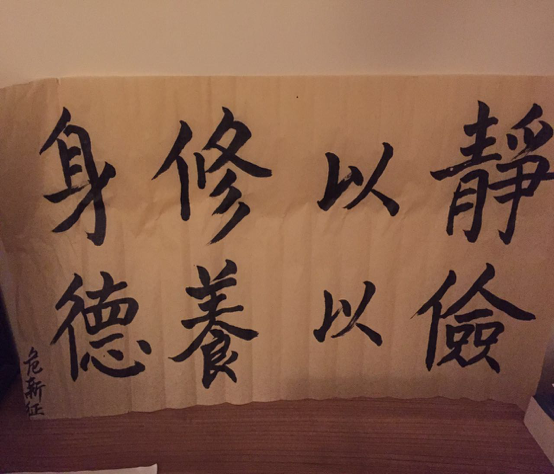 靜以修身
儉以養德
危新征